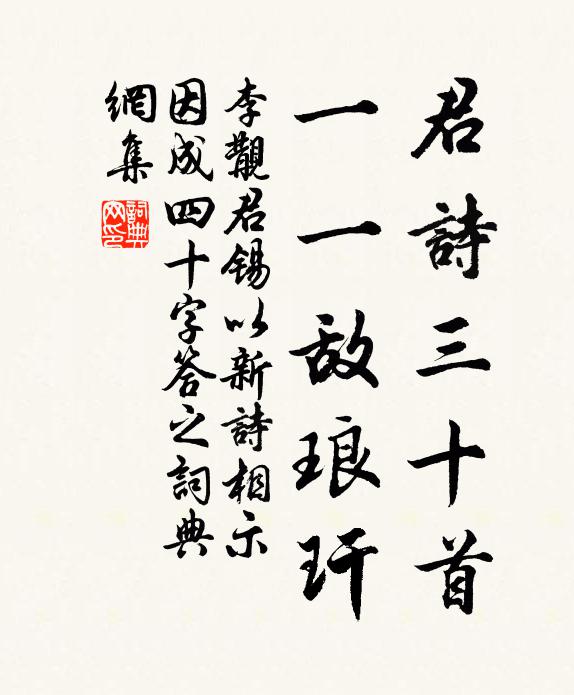 君詩三十首
一一敌琅玕
李覯君锡以新詩相示
因成四十字答之詞典
網集
詞典網印